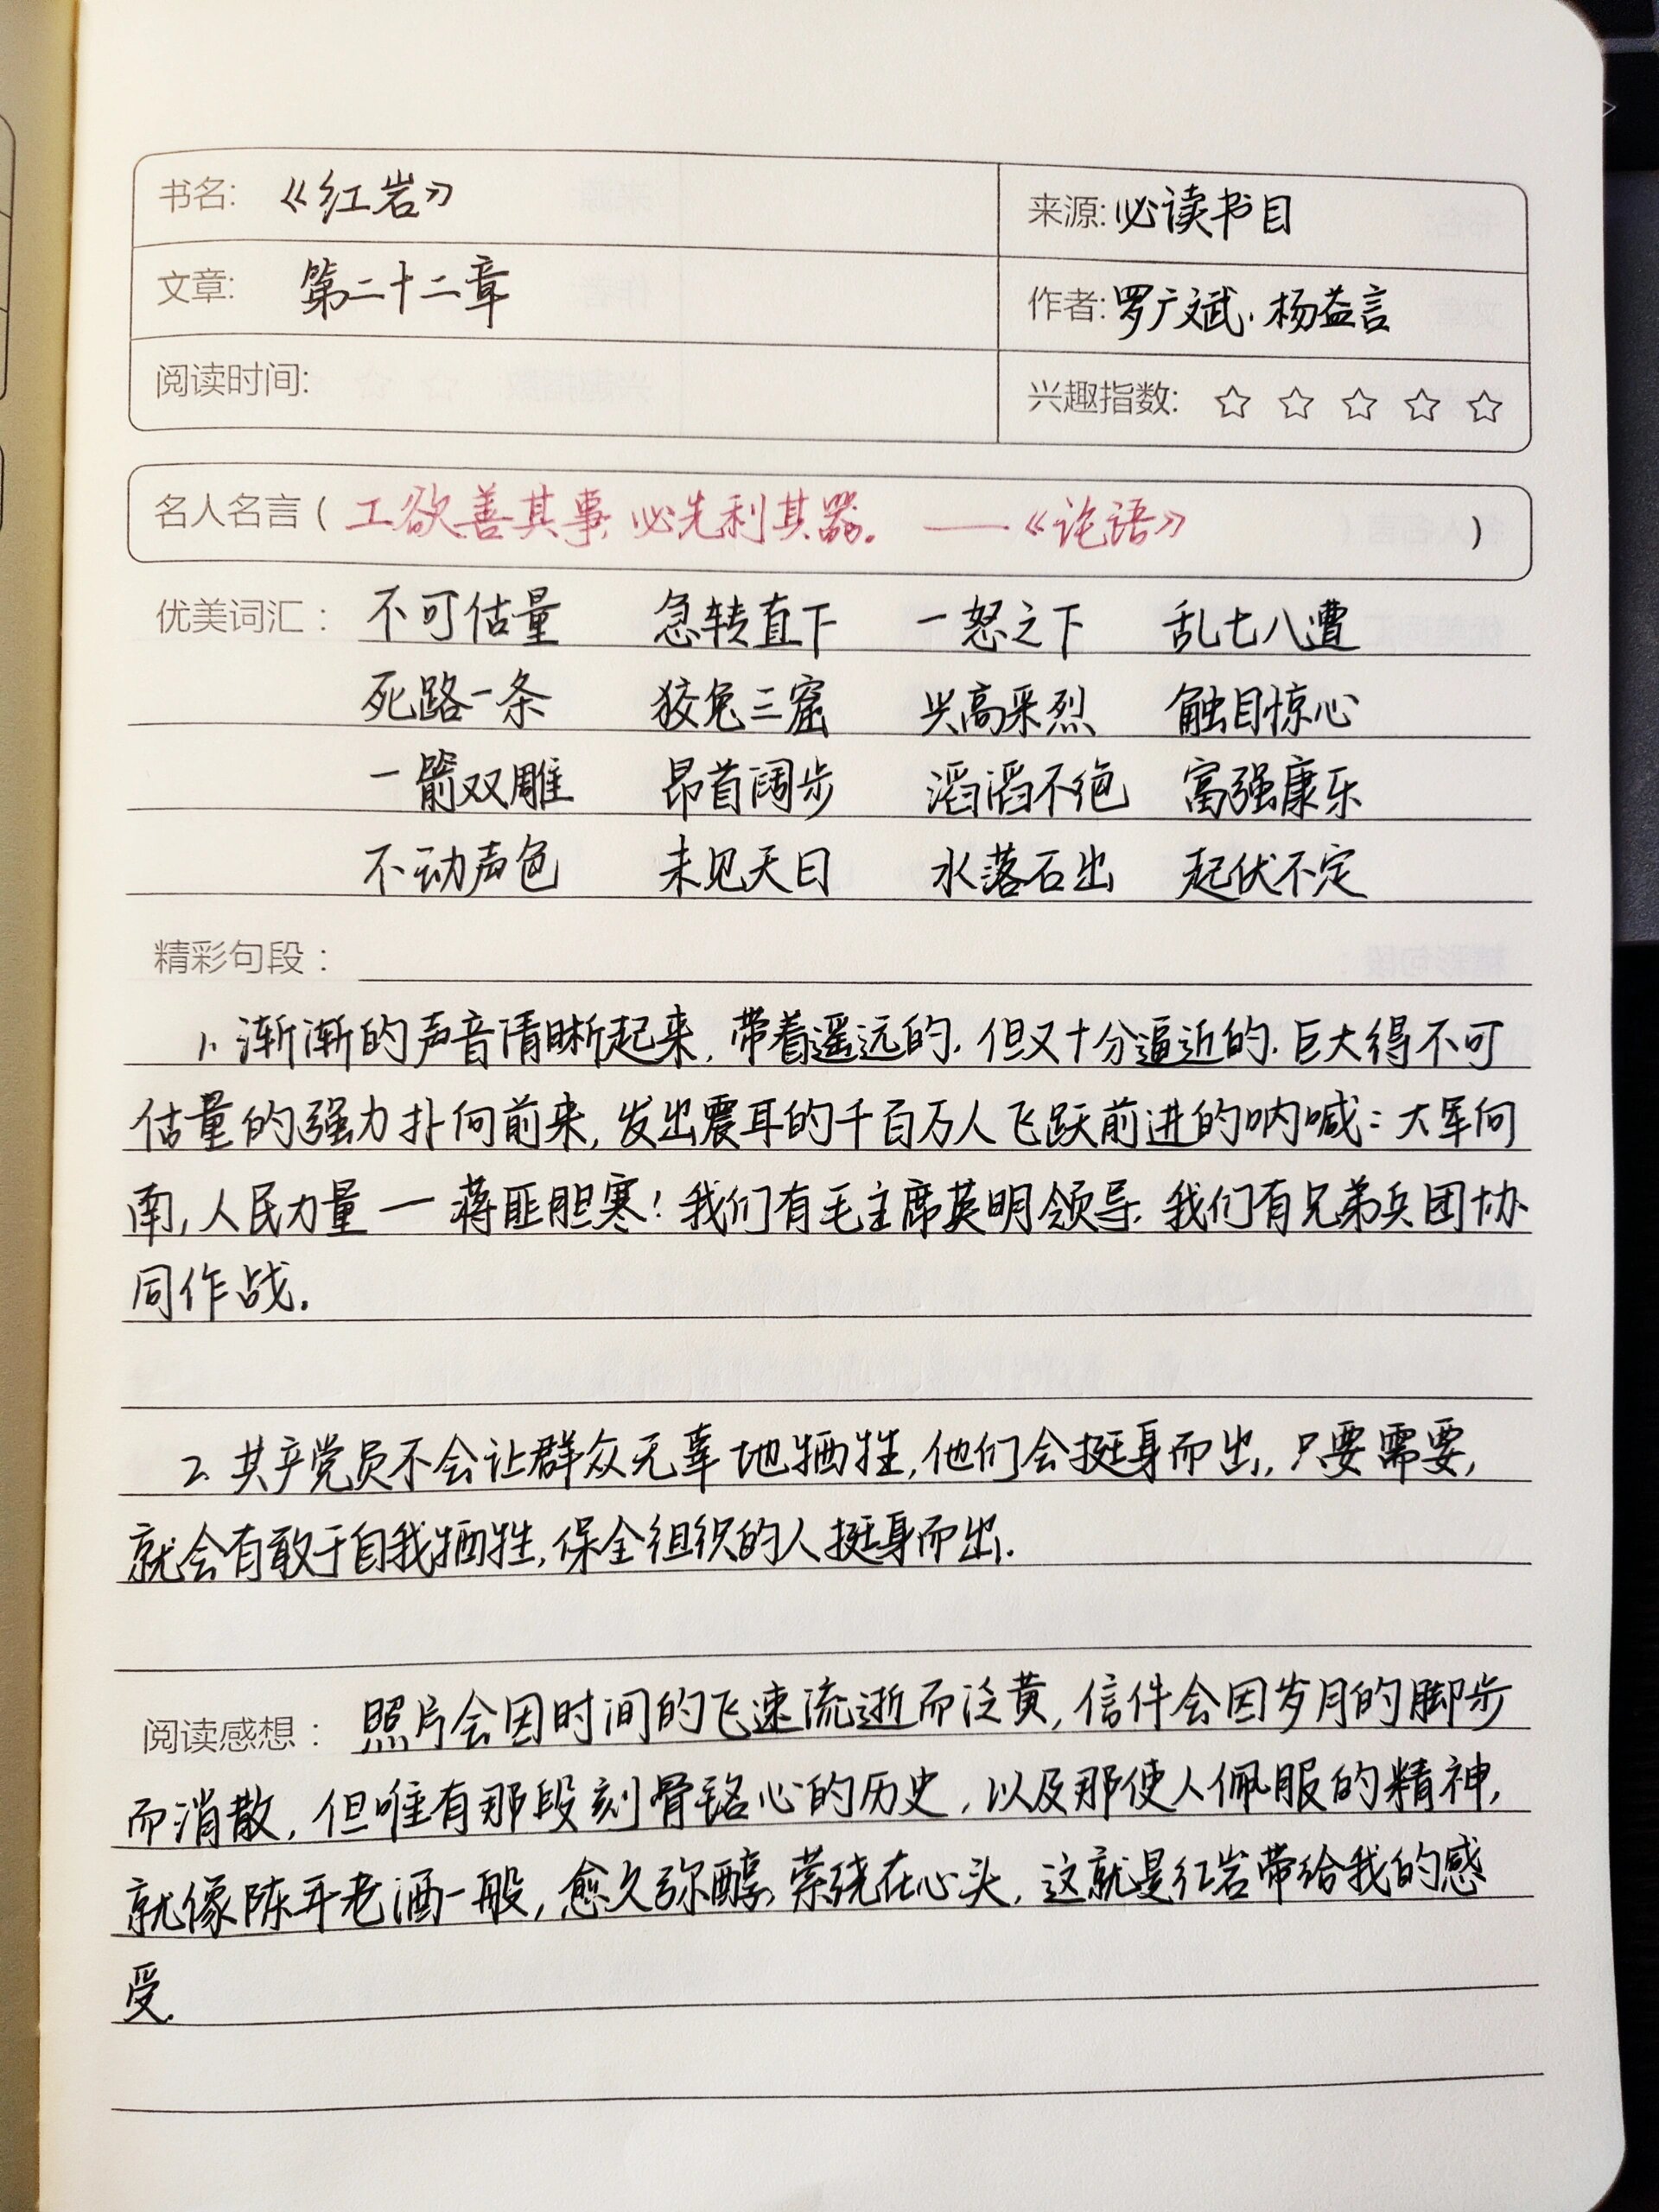 书名: 《红岩》
来源: 必读书目
文章: 第二十二章
作者: 罗广斌、杨益言
阅读时间:
兴趣指数: ☆ ☆ ☆ ☆ ☆
名人名言( 工欲善其事,必先利其器。 ——《论语》 )
优美词汇: 不可估量 急转直下 一怒之下 乱七八遭
死路一条 狡兔三窟 兴高采烈 触目惊心
一箭双雕 昂首阔步 滔滔不绝 富强康乐
不动声色 未见天日 水落石出 起伏不定
精彩句段:
1、渐渐的声音清晰起来,带着遥远的、但又十分逼近的、巨大得不可
估量的强力扑向前来,发出震耳的千百万人飞跃前进的呐喊:大军向
南,人民力量一蒋匪胆寒!我们有毛主席英明领导、我们有兄弟兵团协
同作战。
2、共产党员不会让群众无辜地牺牲,他们会挺身而出,只要需要,
就会有敢于自我牺牲,保全组织的人挺身而出。
阅读感想: 照片会因时间的飞速流逝而泛黄,信件会因岁月的脚步
而消散,但唯有那段刻骨铭心的历史,以及那使人佩服的精神,
就像陈年老酒一般,愈久弥醇,萦绕在心头,这就是红岩带给我的感
受。